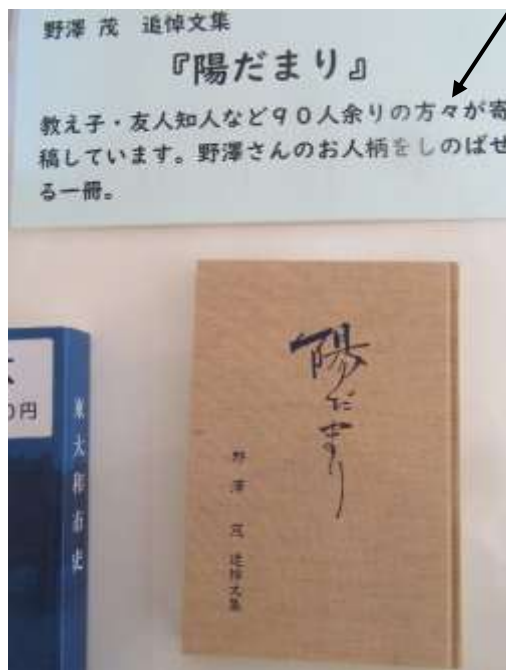 野澤 茂 追悼文集
『陽だまり』
教え子・友人知人など９０人余りの方々が寄
稿しています。野澤さんのお人柄をしのばせ
る一冊。
陽だまり
野澤 茂 追悼文集
0円
東大和市史